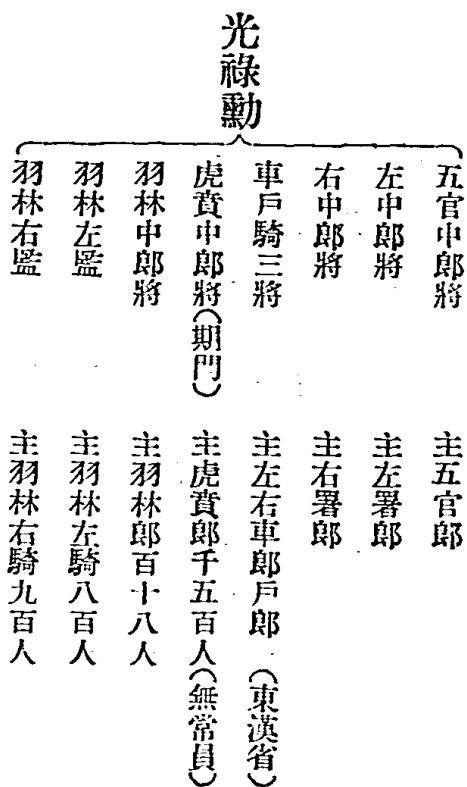 光祿勳
五官中郎將 主五官郎
左中郎將 主左署郎
右中郎將 主右署郎
車戶騎三將 主左右車郎戶郎(東漢省)
虎賁中郎將(期門) 主虎賁郎千五百人(無常員)
羽林中郎將 主羽林郎百十八人
羽林左監 主羽林左騎八百人
羽林右監 主羽林右騎九百人